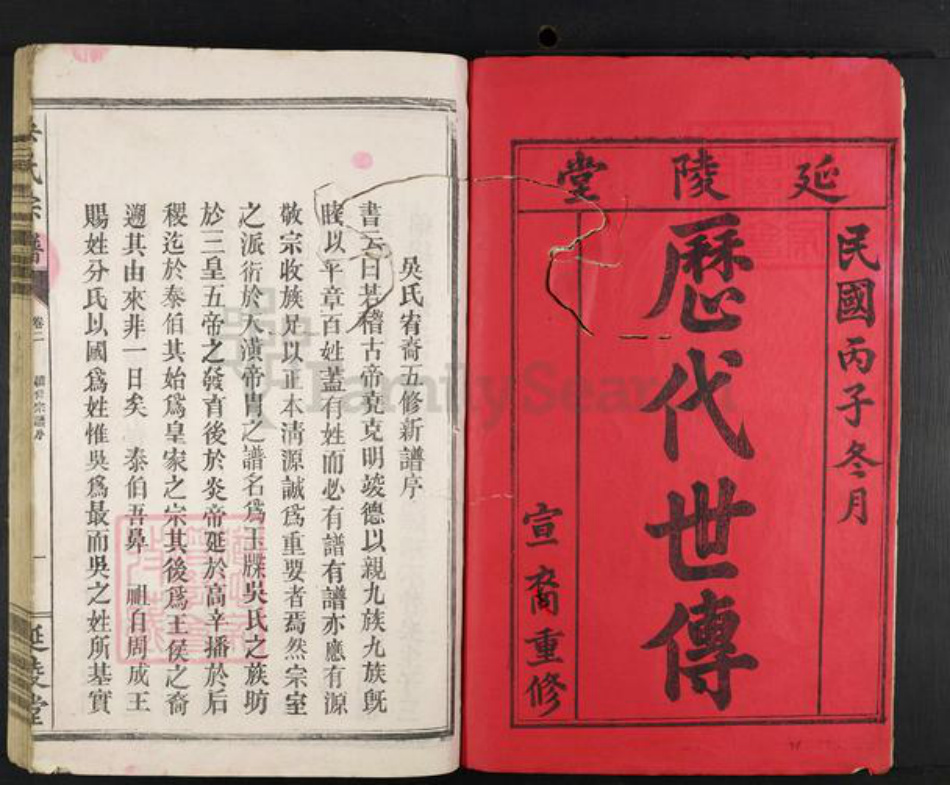 延陵堂
民國丙子冬月
歷代世傳
宣裔重修
吳氏宥裔五修新譜序
書云曰若稽古帝堯克明竣德以親九族九族既
睦以平章百姓蓋有姓而必有譜有譜亦應有源
敬宗收族足以正本清源誠爲重要者焉然宗室
之派衍於天潢帝胄之譜名爲玉牒吳氏之族昉
於三皇五帝之發育後於炎帝延於高辛播於后
稷迄於泰伯其始爲皇家之宗其後爲王侯之裔
遡其由來非一日矣 泰伯吾鼻 祖自周成王
賜姓分氏以國爲姓惟吳爲最而吳之姓所基實
氏宗譜
卷二
一
延陵堂
FamilySearch